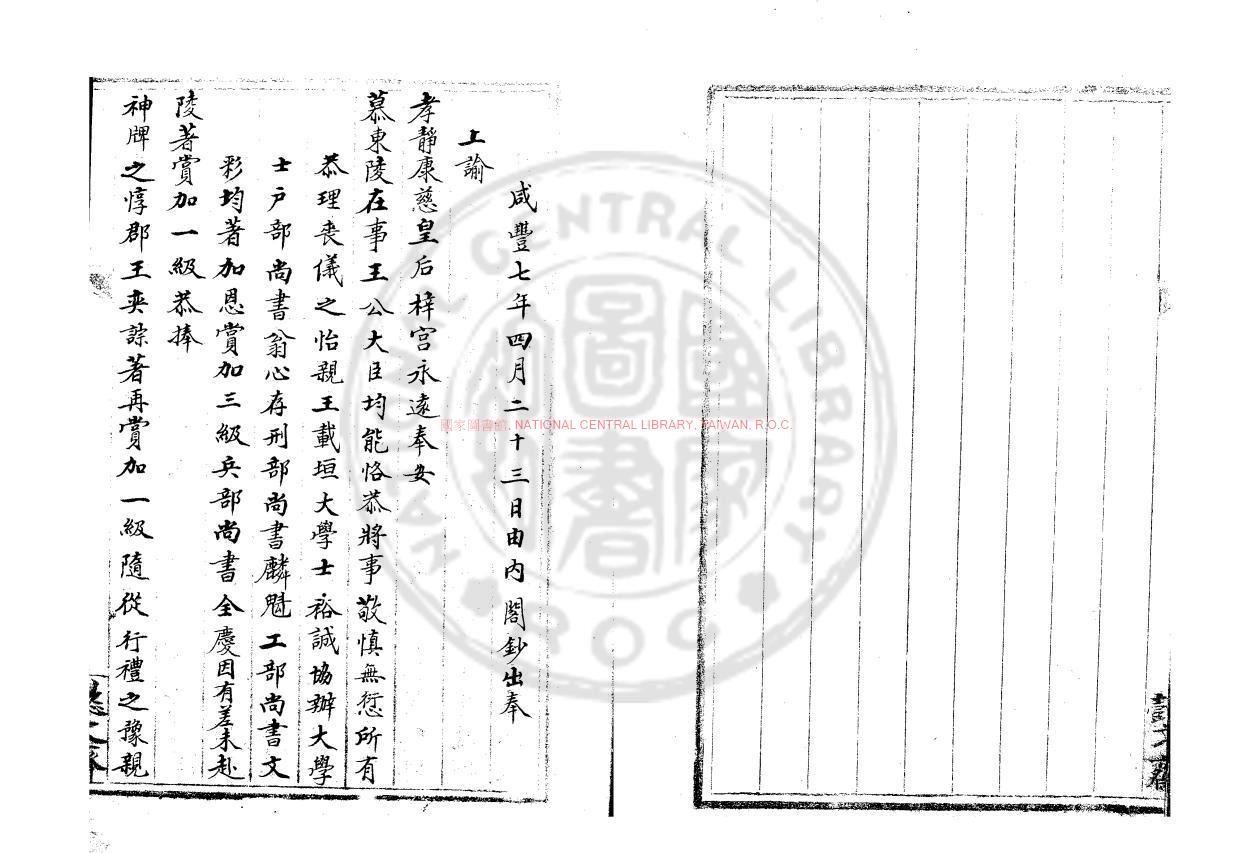 咸豐七年四月二十三日由内閣鈔出奉
上諭
孝靜康慈皇后梓宮永遠奉安
慕東陵在事王公大臣均能恪恭將事敬慎無愆所有
恭理喪儀之怡親王載垣大學士裕誠協辦大學
士户部尚書翁心存刑部尚書麟魁工部尚書文
彩均著加恩賞加三級兵部尚書全慶因有差未赴
陵著賞加一級恭捧
神牌之惇郡王奕誴著再賞加一級隨從行禮之豫親
國家圖書館, NATIONAL CENTRAL LIBRARY, TAIWAN, R.O.C.
NATIONAL CENTRAL LIBRARY
ROC
國家圖書館